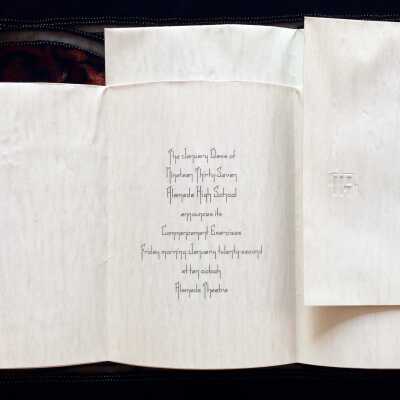 The January Class of
Nineteen Thirty-Seven
Alameda High School
announces its
Commencement Exercises
Friday morning, January twenty-second
at ten o'clock
Alameda Theatre